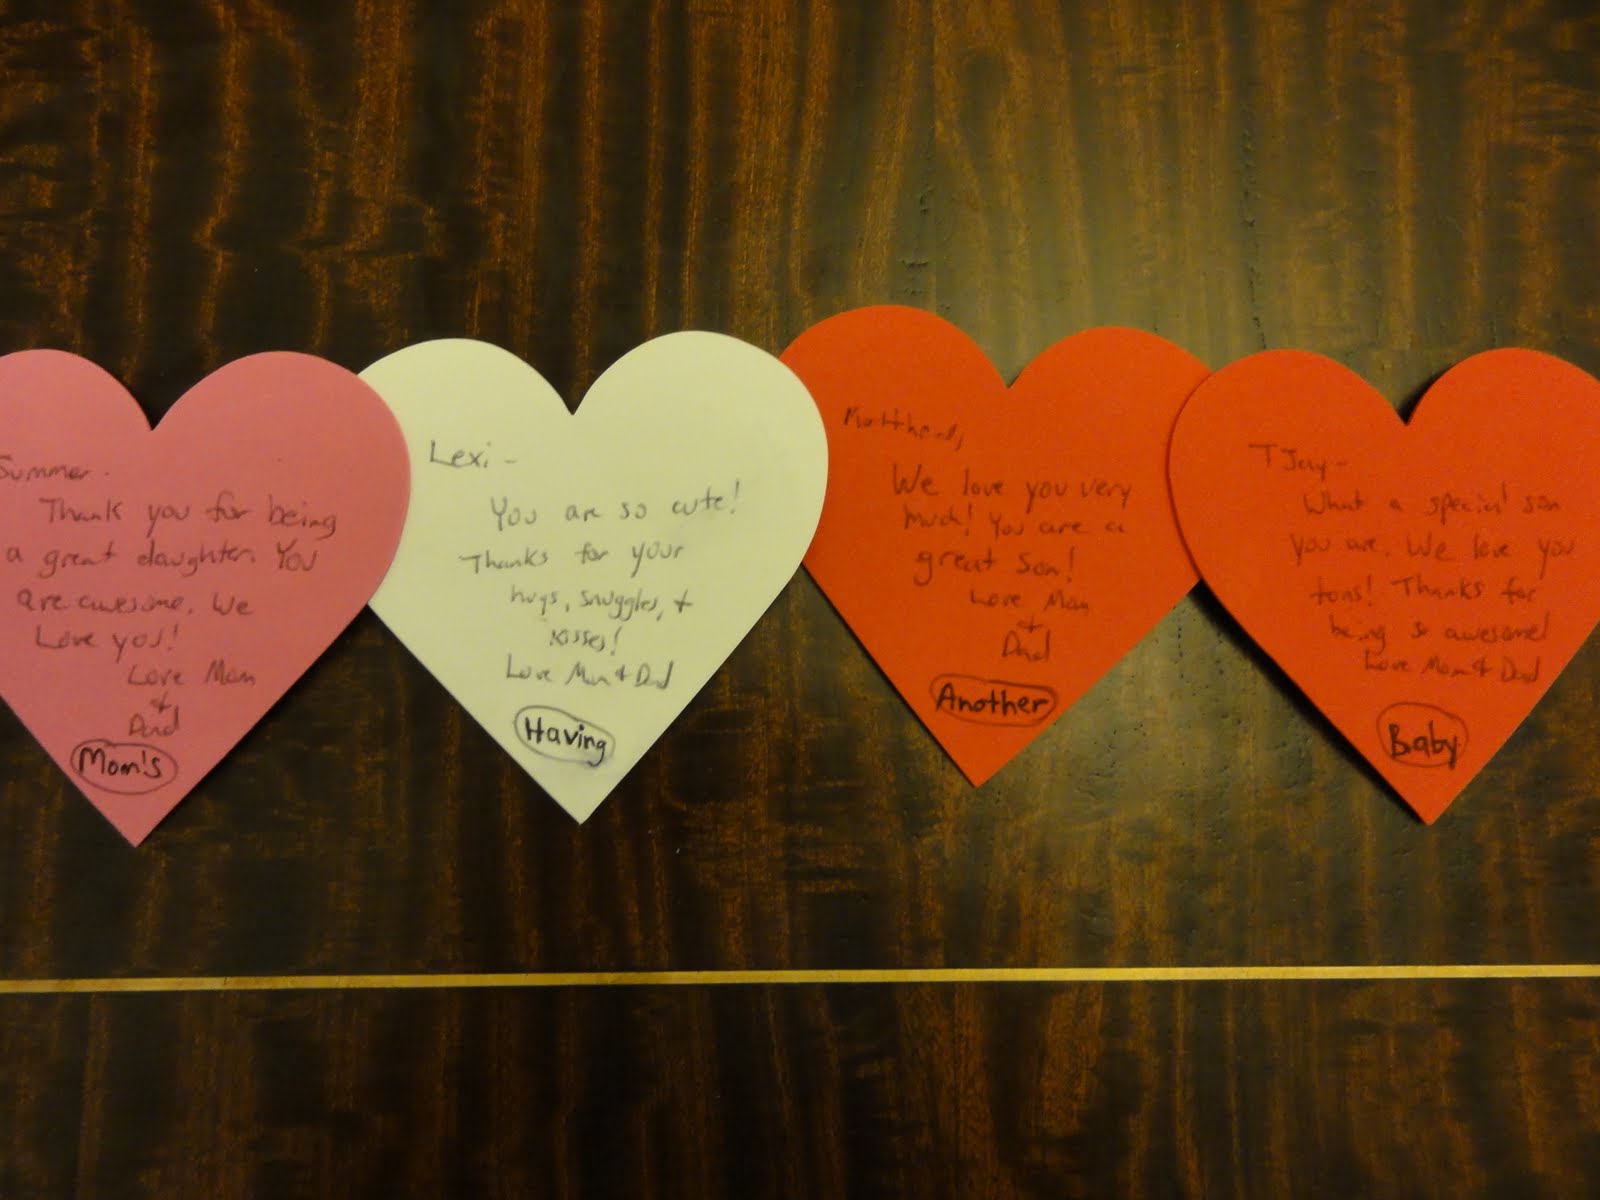 Summer -
Thank you for being
a great daughter. You
are awesome. We
Love you!
Love Mom
&
Dad
Mom's
Lexi -
You are so cute!
Thanks for your
hugs, snuggles, +
kisses!
Love Mom & Dad
Having
Matthew,
We love you very
much! You are a
great son!
Love Mom
&
Dad
Another
TJay -
What a special son
you are. We love you
tons! Thanks for
being so awesome!
Love Mom & Dad
Baby.